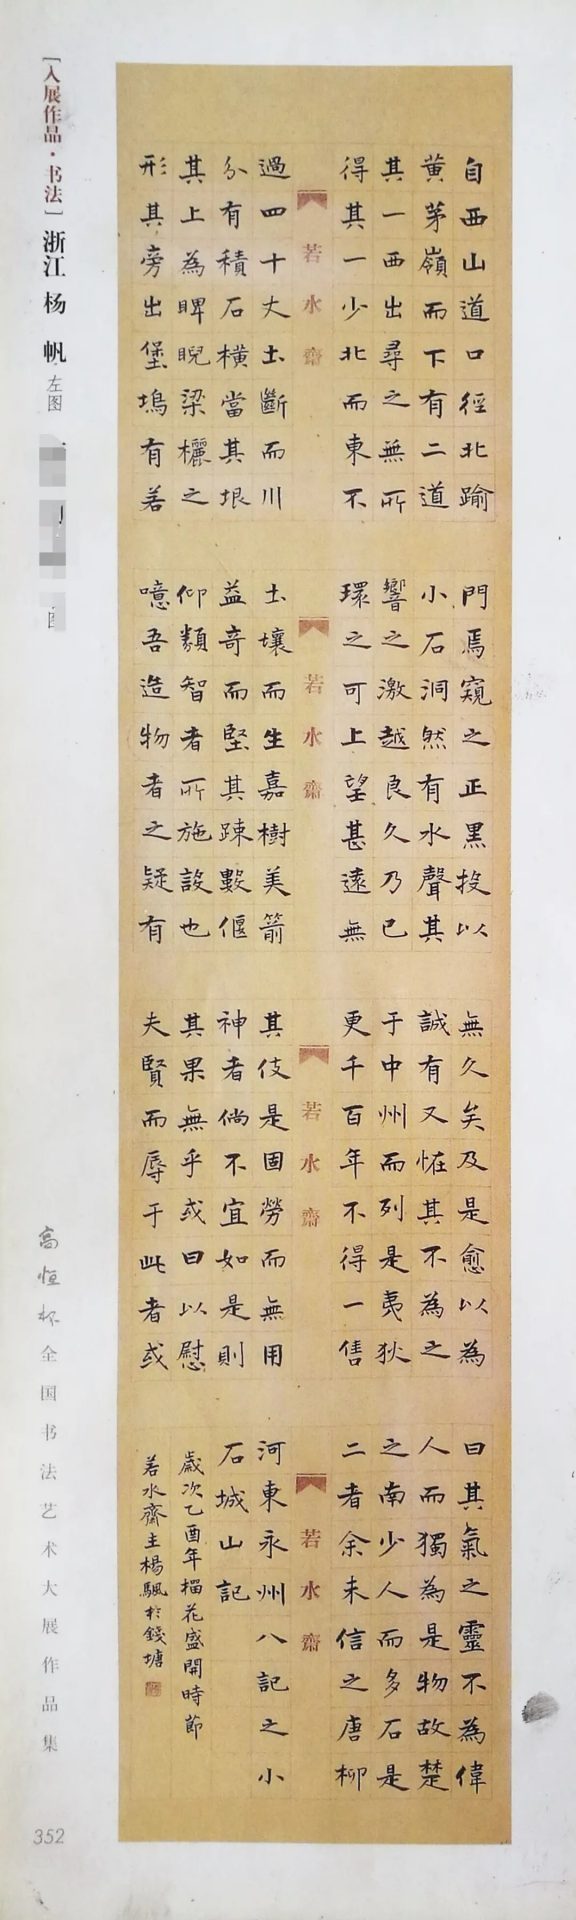 [入展作品·书法] 浙江 杨 帆 左图
自西山道口徑北踰
黄茅嶺而下有二道
其一西出尋之無所
得其一少北而東不
若水齋
過四十丈土斷而川
分有積石橫當其垠
其上為睥睨梁欐之
形其旁出堡塢有若
門焉窺之正黑投以
小石洞然有水聲其
響之激越良久乃已
環之可上望甚遠無
若水齋
土壤而生嘉樹美箭
益奇而堅其踈數偃
仰類智者所施設也
噫吾造物者之疑有
無久矣及是愈以為
誠有又怪其不為之
于中州而列是夷狄
更千百年不得一售
若水齋
其伎是固勞而無用
神者倘不宜如是則
其果無乎或曰以慰
夫賢而辱于此者或
曰其氣之靈不為偉
人而獨為是物故楚
之南少人而多石是
二者余未信之唐柳
若水齋
河東永州八記之小
石城山記
歲次乙酉年榴花盛開時節
若水齋主楊颿於錢塘
高恒杯全国书法艺术大展作品集
352